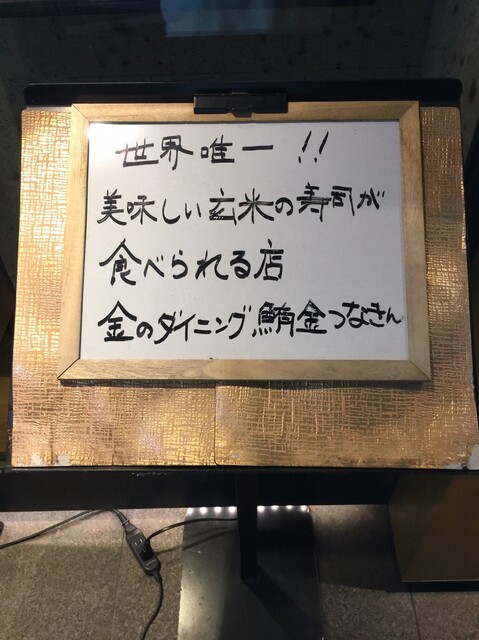 世界唯一!!
美味しい玄米の寿司が
食べられる店
金のダイニング鮪金つなきん